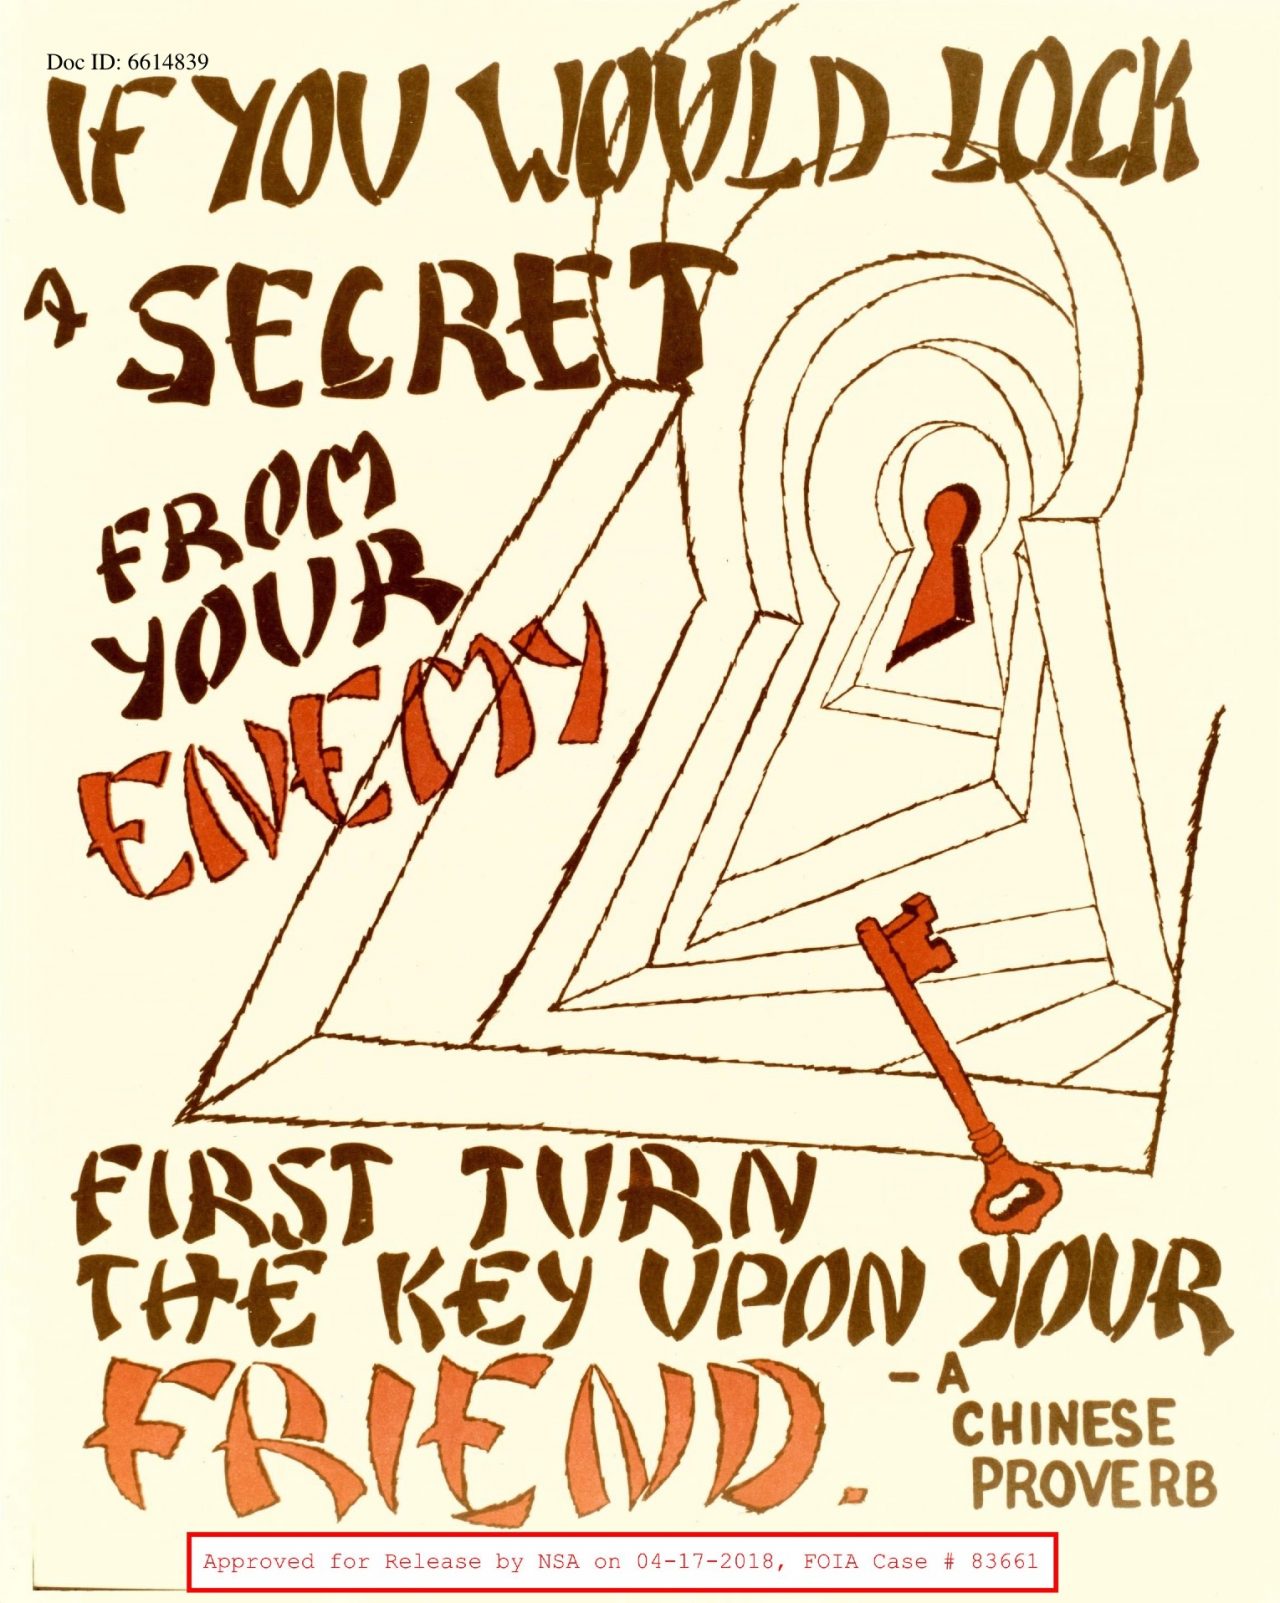 Doc ID: 6614839
IF YOU WOULD LOCK
A SECRET
FROM
YOUR
ENEMY
FIRST TURN
THE KEY UPON YOUR
FRIEND.
- A
CHINESE
PROVERB
Approved for Release by NSA on 04-17-2018, FOIA Case # 83661